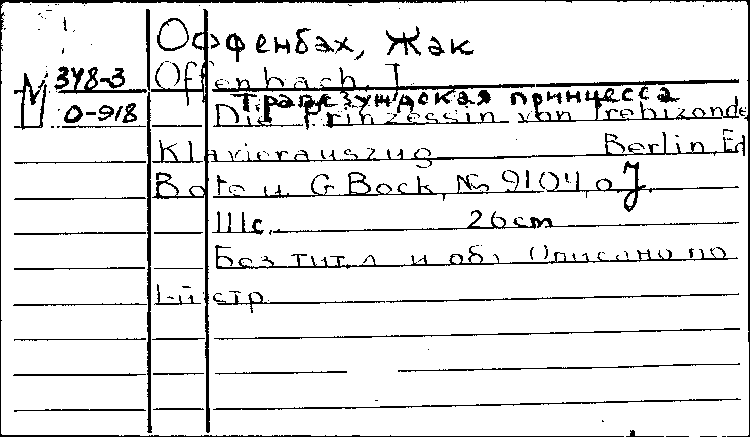 Оффенбах, Жак
М 348-3
Offenbach, J.
Трапезундская принцесса
О-918
Die Prinzessin von Trebizonde
Klavierauszug Berlin, Ed
Bote u. G Bock, № 9104, o. J.
111с. 26cm
Без тит. л и обл Описано по
1-й стр